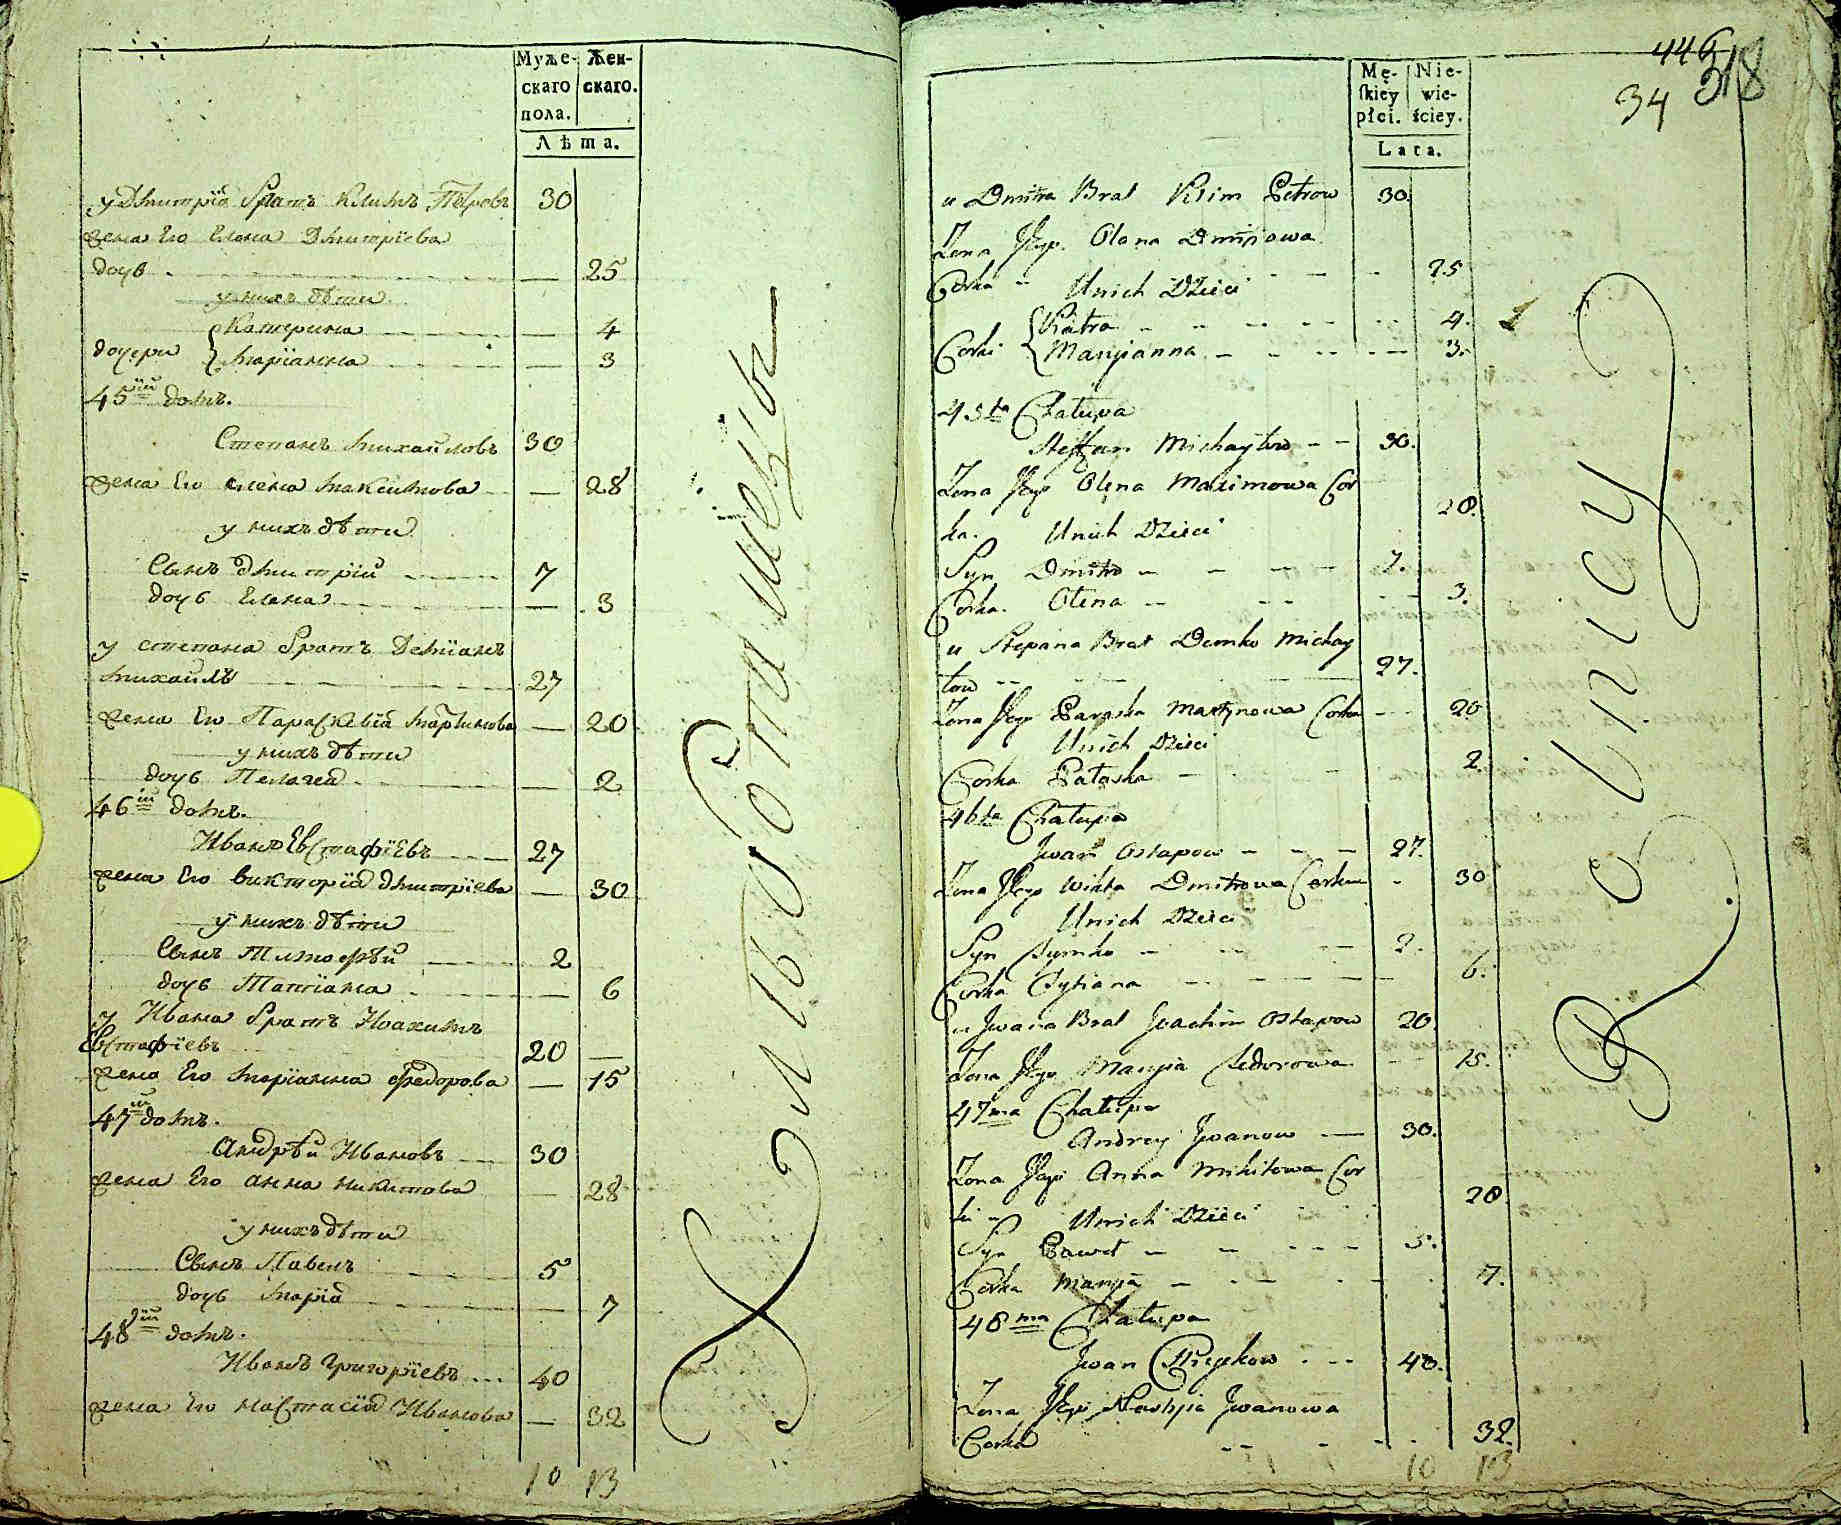 Муже-
скаго
пола.
Жен-
скаго.
Лѣта.
у Дмитрія братъ Климъ Петровъ 30
жена Его Елена Дмитріева
дочь — 25
у нихъ дѣти
дочери { Катерина — 4
Маріанна — 3
45й домъ.
Степанъ Михайловъ 30
жена Его Елена Максимова — 28
у нихъ дѣти
Сынъ Дмитрій 7
дочь Елена — 3
у степана братъ Деміанъ
Михайлъ 27
жена Его Параскевія Мартинова — 20
у нихъ дѣти
дочь Пелагея — 2
46й домъ.
Иванъ Евстафіевъ 27
жена Его Викторія Дмитріева — 30
у нихъ дѣти
Сынъ Тимофѣй 2
дочь Татіана — 6
У Ивана братъ Иоакимъ
Евстафіевъ 20 —
жена Его Маріанна Федорова — 15
47й домъ.
Андрѣй Ивановъ 30
жена Его Анна Никитова — 28
у нихъ дѣти
Сынъ Павелъ 5
дочь Марія — 7
48й домъ.
Иванъ Григоріевъ 40
жена Его Настасія Иванова — 32
10 13
446
318
34
Mę-
skiey
płci.
Nie-
wie-
ściey.
Lata.
u Dmitra Brat Klim Petrow 30.
Zona Jego Olena Dmitrowa
Corka 25
Unich Dzieci
Corki { Katra 4.
Maryianna 3.
45ta Chałupa
Steffan Michayłow 30.
Zona Jego Olena Maximowa Cor
ka. 28.
Unich Dzieci
Syn Dmitro 7.
Corka Olena 3.
u Stepana Brat Demko Michay
łow 27.
Zona Jego Paraska Martynowa Corka 20
Unich Dzieci
Corka Palaska 2.
46ta Chałupa
Jwan Ostapow 27.
Zona Jego Wikta Dmitrowa Corka 30
Unich Dzieci
Syn 2.
Corka 6.
u Jwana Brat Joachim Ostapow 20.
Zona Jego Maryia Fedorowa 15.
47ma Chałupa
Andrey Jwanow 30.
Zona Jego Anna Mikitowa Cor
ka 28
Unich Dzieci
Syn Paweł 5.
Corka Maryia 7.
48ma Chałupa
Jwan 40.
Zona Jego Nastazia Jwanowa
Corka 32.
10 13